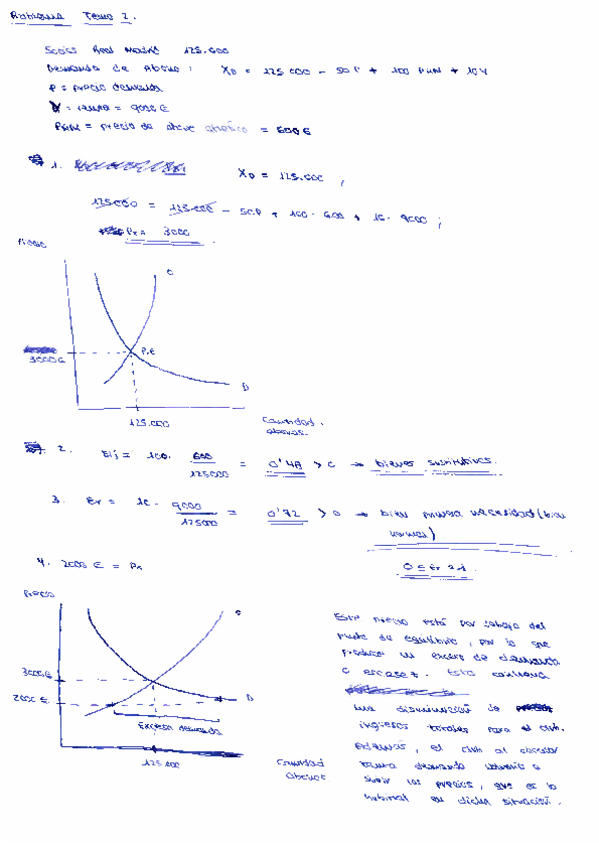 Problema Tema 2.
Socios Real Madrid 125.000
Demanda de Abono: XD = 125 000 - 50 P + 100 PAM + 10 Y
P = precio demanda
Y = renta = 9000 €
PAM = precio de abono atlético = 600 €
1. XD = 125.000 ;
125.000 = 125.000 - 50P + 100 · 600 + 10 · 9000 ;
Px = 3000
Precio
O
P.E
3000€
D
125.000
Cantidad
abonos.
2. Eij = 100 · 600 / 125000 = 0'48 > 0 → bienes sustitutivos.
3. Er = 10 · 9000 / 125000 = 0'72 > 0 → bien primera necesidad (bien
normal)
4. 2000 € = Px
Precio
O
3000€
2000 €
D
Exceso demanda
125.000
Cantidad
abonos
Este precio está por debajo del
punto de equilibrio, por lo que
produce un exceso de demanda
o escasez. Esto conlleva
una disminución de
ingresos totales para el club.
Además, el club al
tanta demanda
subir los precios, que es lo
habitual en dicha situación.